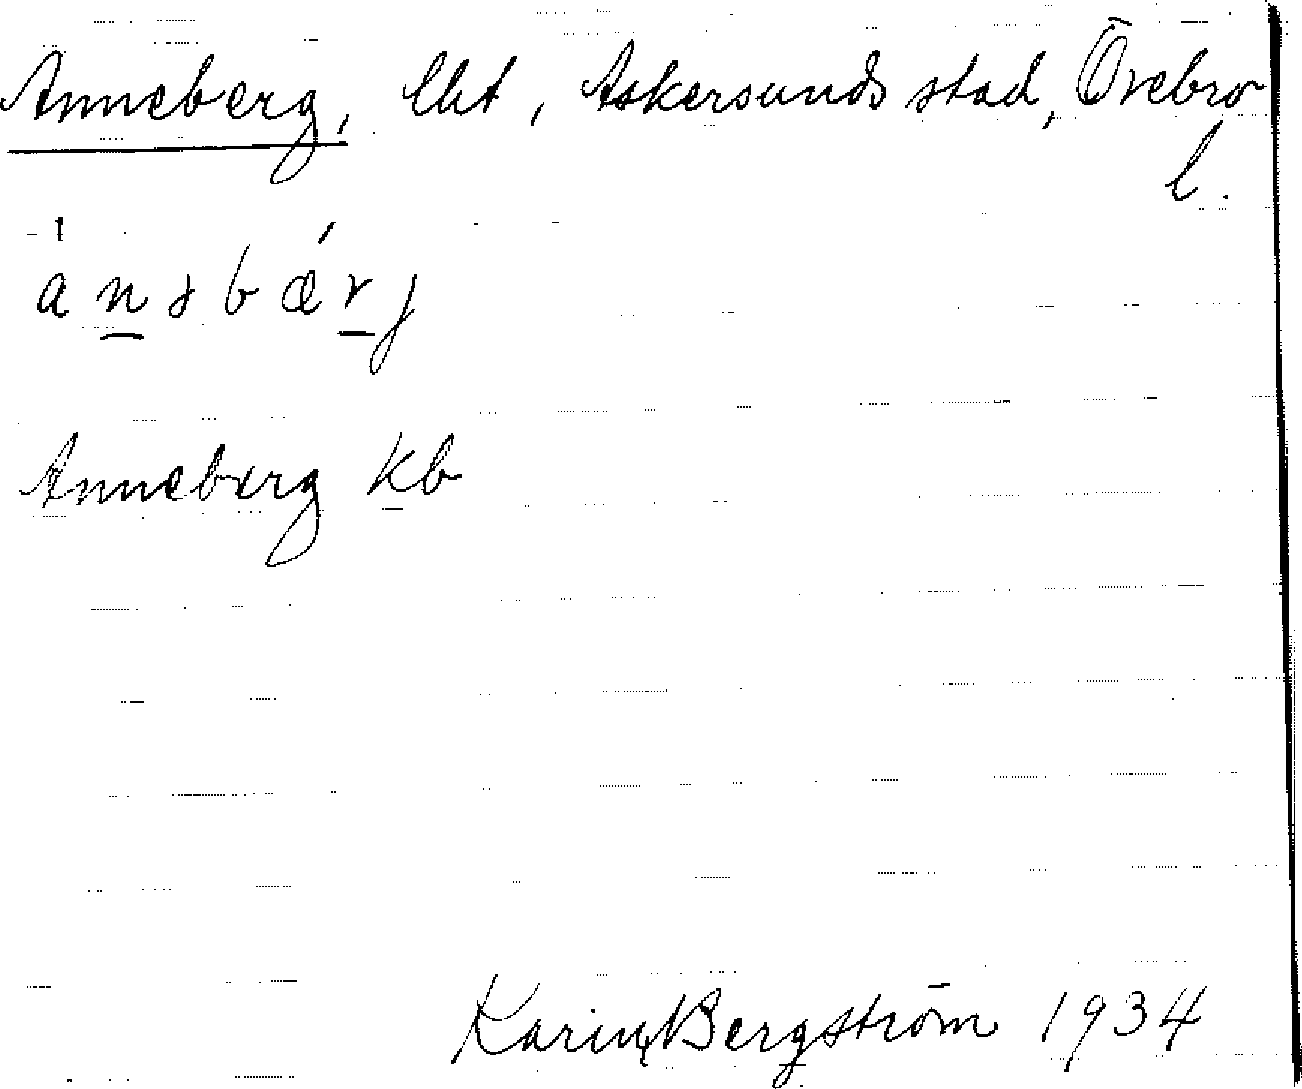 Anneberg, lht, Askersunds stad, Örebro
l.
ànəbǽrj
Anneberg Kb
Karin Bergström 1934